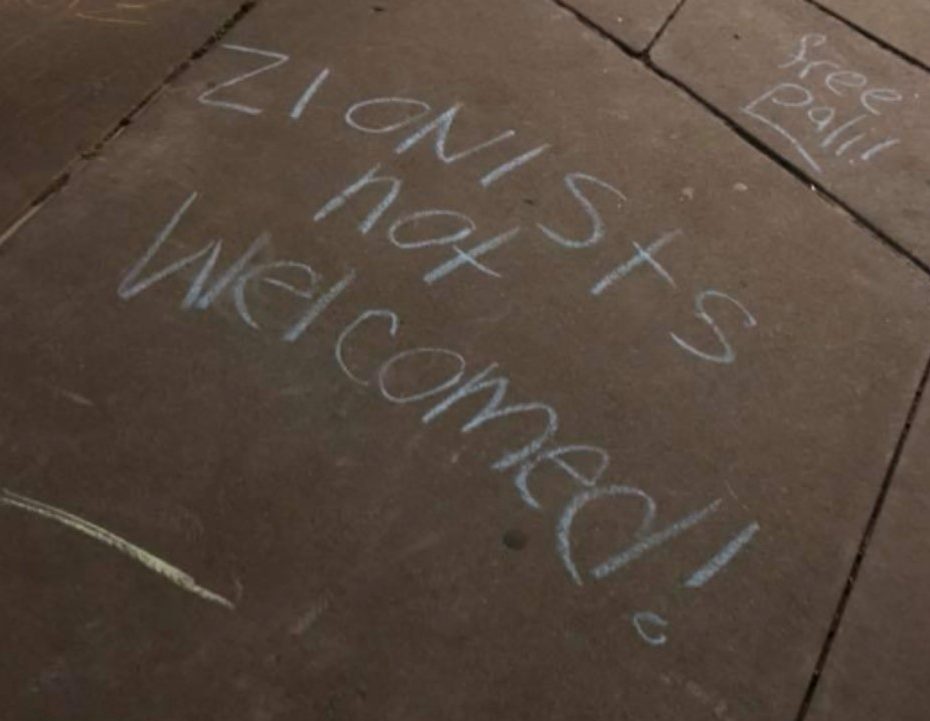 ZIONIStS
not
Welcomed!
free
pali!!